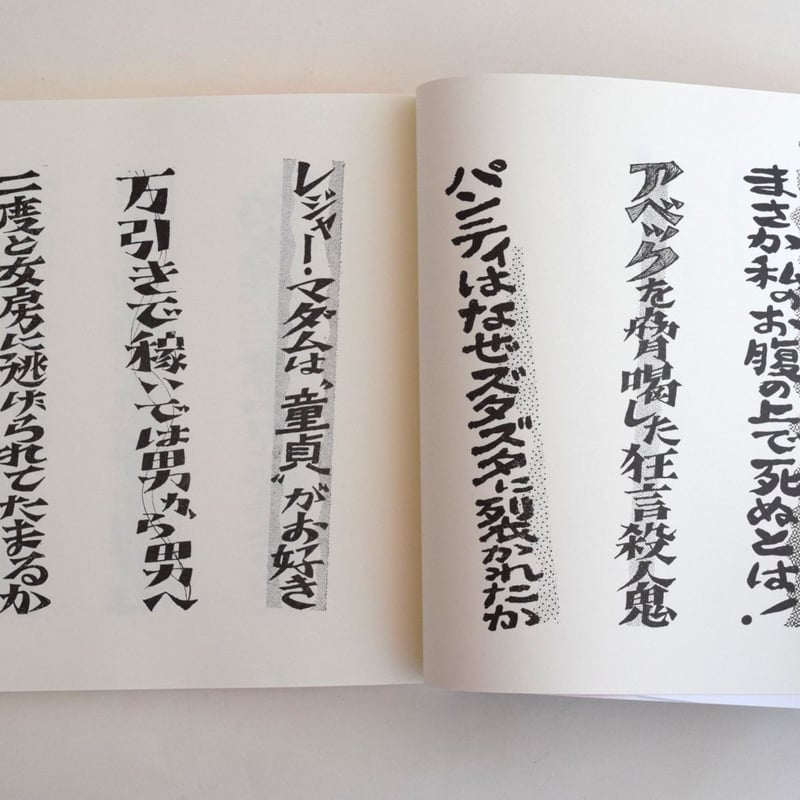 まさか私のお腹の上で死ぬとは！
アベックを脅喝した狂言殺人鬼
パンティはなぜズタズタに裂かれたか
レジャー・マダムは〝童貞〟がお好き
万引きで稼いでは男から男へ
二度と女房に逃げられてたまるか